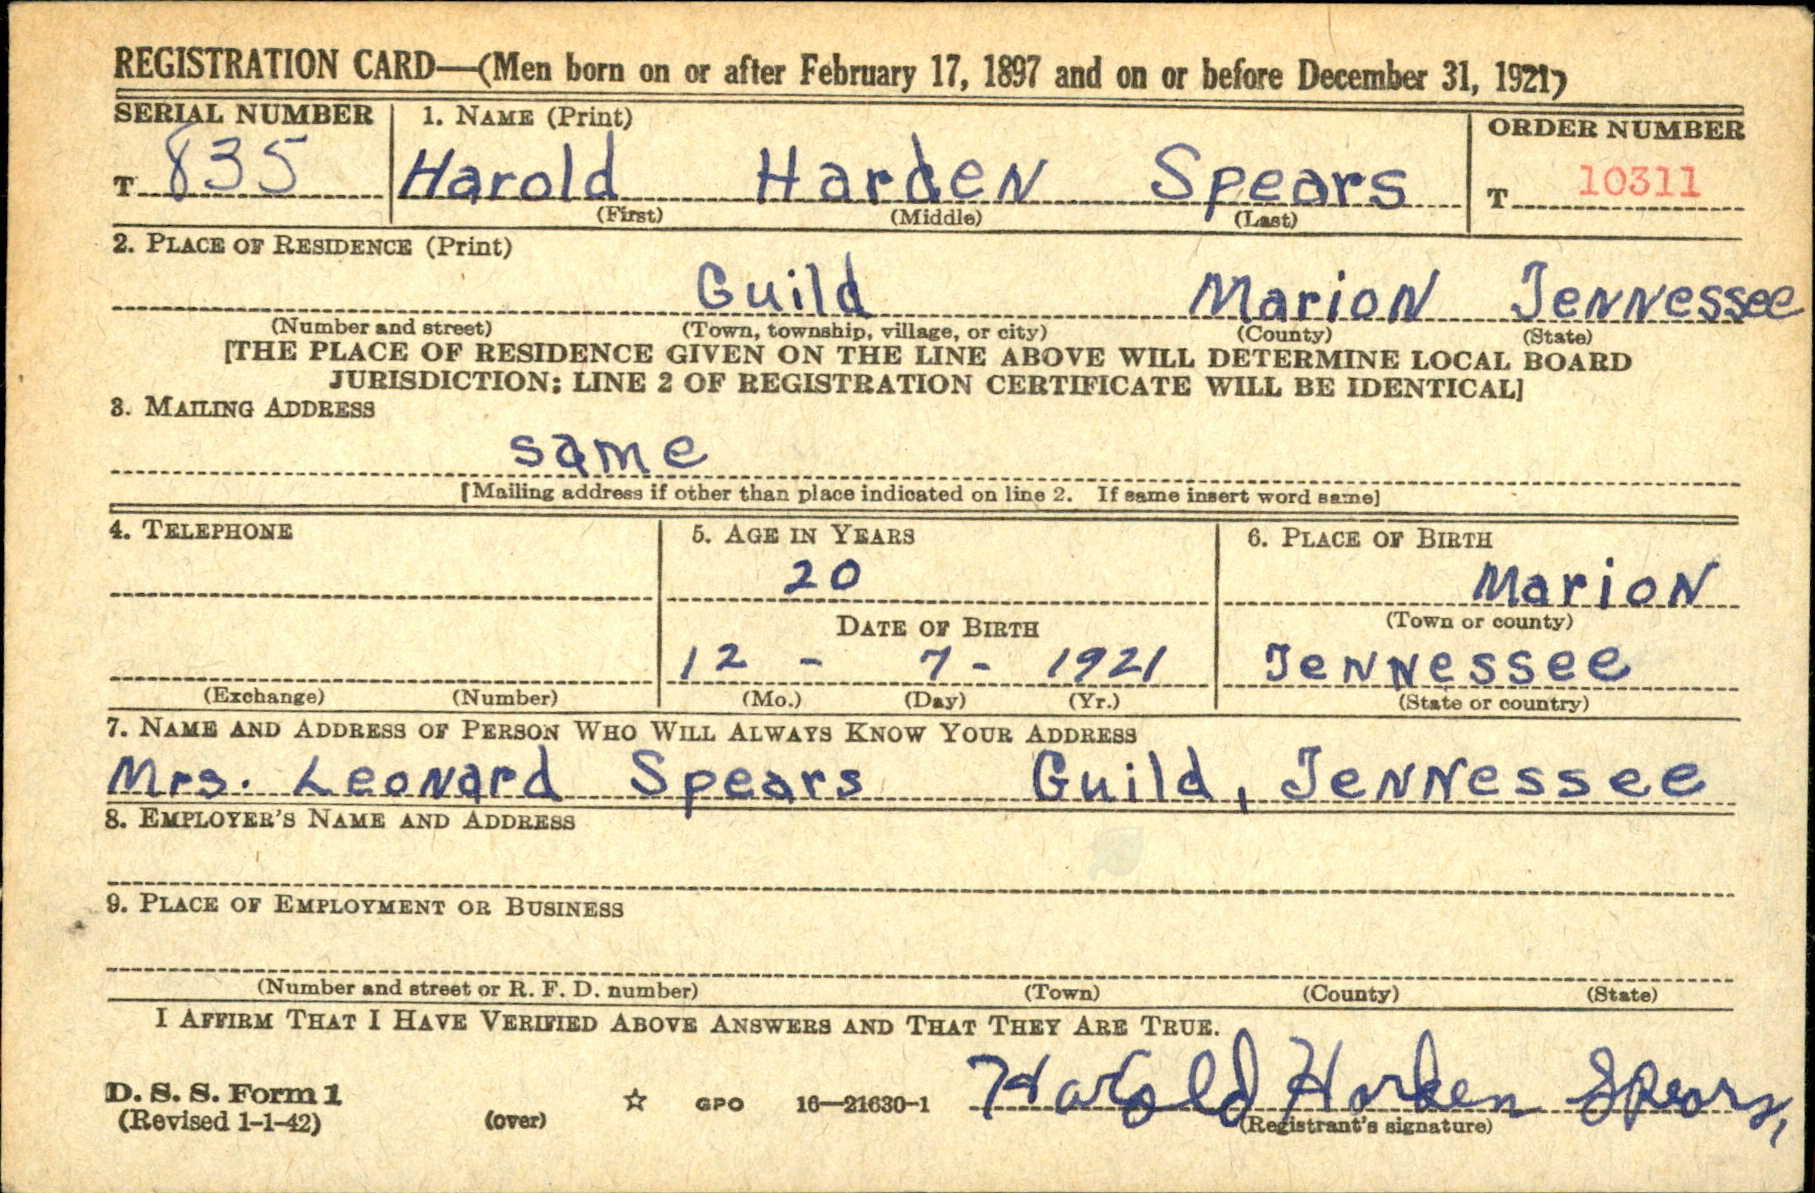 REGISTRATION CARD—(Men born on or after February 17, 1897 and on or before December 31, 1921)
SERIAL NUMBER 1. NAME (Print) ORDER NUMBER
T 835 Harold Harden Spears T 10311
(First) (Middle) (Last)
2. PLACE OF RESIDENCE (Print)
Guild Marion Tennessee
(Number and street) (Town, township, village, or city) (County) (State)
[THE PLACE OF RESIDENCE GIVEN ON THE LINE ABOVE WILL DETERMINE LOCAL BOARD
JURISDICTION; LINE 2 OF REGISTRATION CERTIFICATE WILL BE IDENTICAL]
3. MAILING ADDRESS
same
[Mailing address if other than place indicated on line 2. If same insert word same]
4. TELEPHONE 5. AGE IN YEARS 6. PLACE OF BIRTH
20 Marion
DATE OF BIRTH (Town or county)
12 - 7 - 1921 Tennessee
(Exchange) (Number) (Mo.) (Day) (Yr.) (State or country)
7. NAME AND ADDRESS OF PERSON WHO WILL ALWAYS KNOW YOUR ADDRESS
Mrs. Leonard Spears Guild, Tennessee
8. EMPLOYER'S NAME AND ADDRESS
9. PLACE OF EMPLOYMENT OR BUSINESS
(Number and street or R. F. D. number) (Town) (County) (State)
I AFFIRM THAT I HAVE VERIFIED ABOVE ANSWERS AND THAT THEY ARE TRUE.
D. S. S. Form 1 Harold Harden Spears,
(Revised 1-1-42) (over) ☆ GPO 16—21630-1 (Registrant's signature)